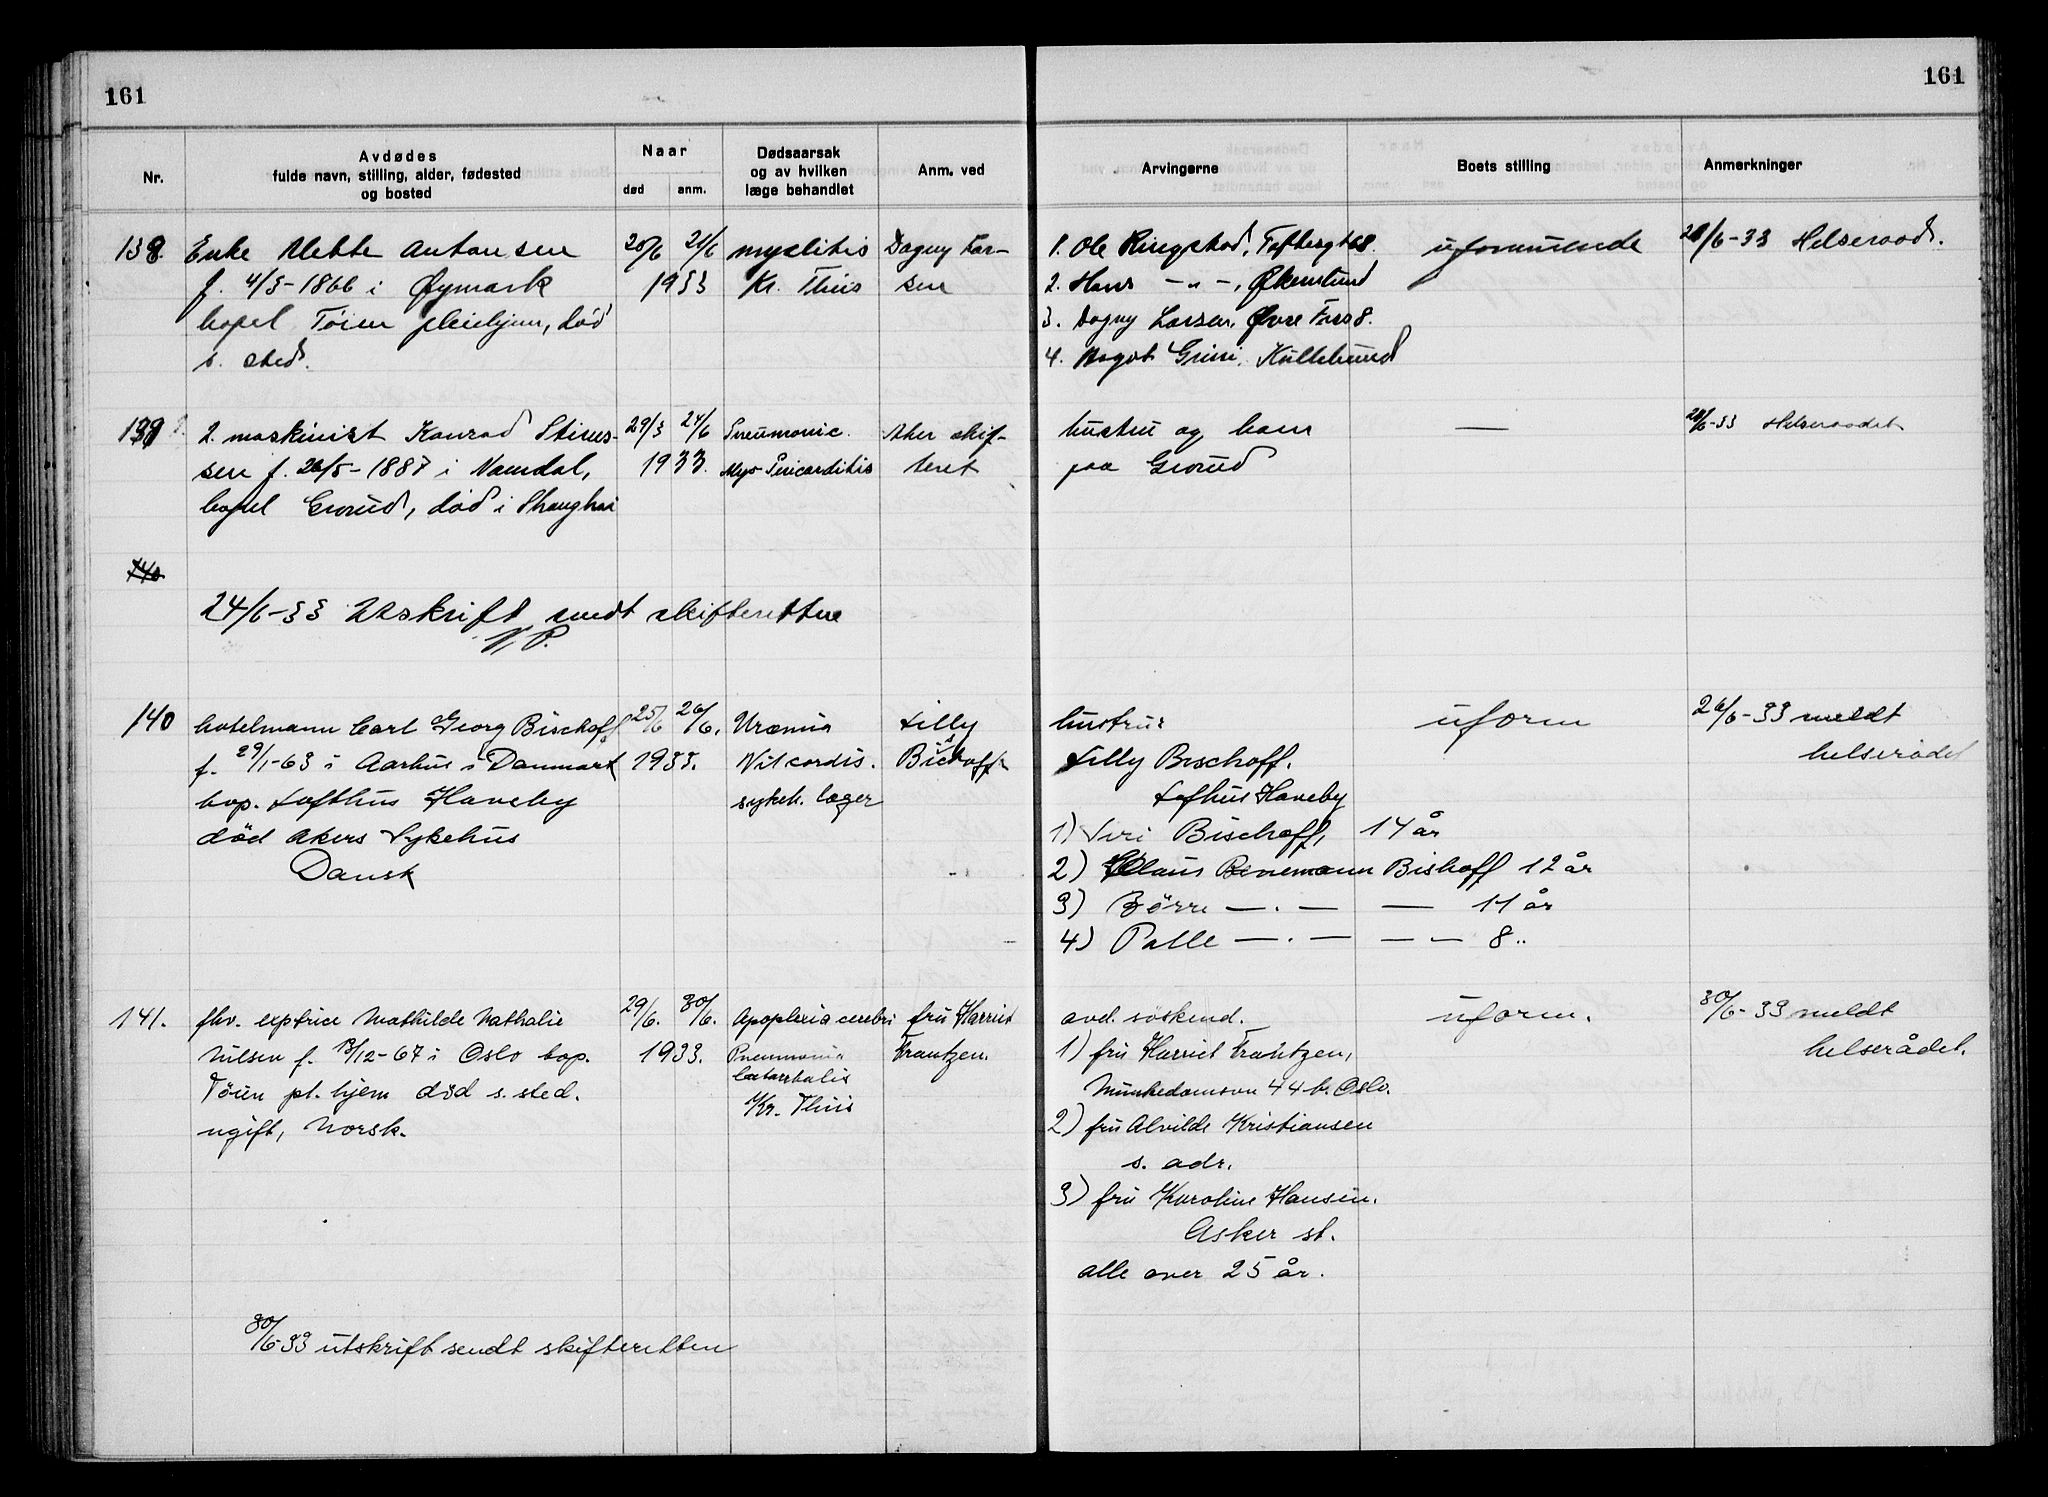 161
161
Nr.
Avdødes
fulde navn, stilling, alder, fødested
og bosted
Naar
død
anm.
Dødsaarsak
og av hvilken
læge behandlet
Anm. ved
Arvingerne
Boets stilling
Anmerkninger
138. Enke Mette Antonsen
f. 4/3-1866 i Øymark
bopel Tøien pleiehjem, død
s. sted.
20/6 21/6
1933
myelitis
Kr. Thiis
Dagny Lar-
sen
1. Ole Ringstad, Toftesgt 68.
2. Hans -„-,
3. Dagny Larsen, Øvre Foss 8.
4. Magot Grini,
uformuende
21/6-33 Helseraad.
139 2. maskinist Konrad Stines-
sen f. 26/5-1887 i Namdal,
bopel Grorud, død i Shanghai
29/3 24/6
1933.
Pneumonie.
Myo Pericarditis
Aker skif-
teret
hustru og barn
paa Grorud
—
24/6-33 Helseraadet
140
24/6-33 Utskrift sendt skifteretten
140 hotelmann Carl Georg Bischoff
f. 29/1-63 i Aarhus i Danmark
bop. Lofthus Haveby
död Akers Sykehus
Dansk
25/6 26/6.
1933.
Uræmia
Vit cordis.
sykeh. læger
Lilly
Bischoff
hustru:
Lilly Bischoff.
Lofhus Haveby
1) Siri Bischoff, 14 år
2) Claus Benemann Bishoff 12 år
3) Börre — . — — 11 år
4) Palle — . — — — 8 „
uform
26/6-33 meldt
helserådet
141. fhv. exptrice Mathilde Nathalie
Nilsen f. 13/12-67 i Oslo bop.
Töien pl. hjem död s. sted.
ugift, Norsk.
29/6. 30/6.
1933.
Apoplexia cerebri
Pneumonia
Catarrhalis
Kr. Thiis
fru Harriet
Frantzen.
avd. söskend.
1) fru Harriet Frantzen,
Munkedamsvn 44 b. Oslo.
2) fru Alvilde Kristiansen
s. adr.
3) fru Karoline Hansen.
Asker st.
alle over 25 år.
uform.
30/6-33 meldt
helserådet.
30/6-33 utskrift sendt skifteretten